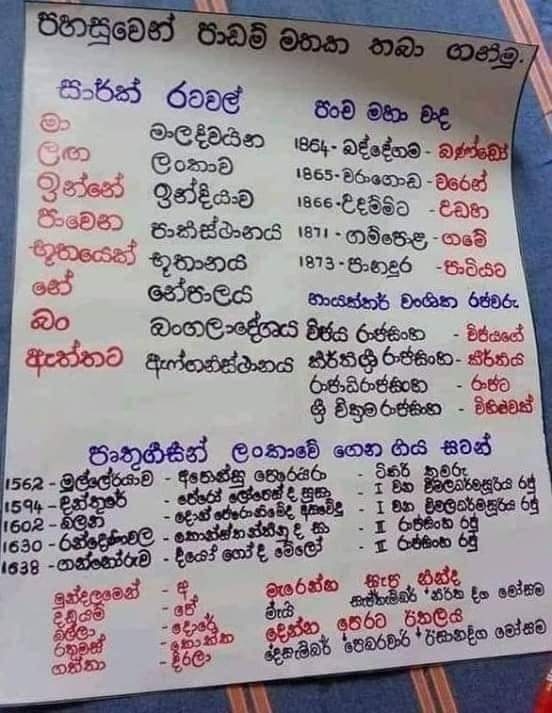 පහසුවෙන් පාඩම් මතක තබා ගනිමු.
සාර්ක් රටවල්
මා මාලදිවයින
ලඟ ලංකාව
ඉන්නේ ඉන්දියාව
පාවෙන පාකිස්ථානය
භූතයෙක් භූතානය
නේ නේපාලය
බං බංගලාදේශය
ඇත්තට ඇෆ්ගනිස්ථානය
පංච මහා වාද
1864- බද්දේගම - බණ්ඩෝ
1865- වරාගොඩ - වරෙන්
1866- උදම්මිට - උඩහ
1871 - ගම්පොළ - ගමේ
1873 - පානදුර - පාටියට
නායක්කර් වංශික රජවරු
විජය රාජසිංහ - විජයගේ
කීර්තිශ්‍රී රාජසිංහ - කීර්තිය
රාජාධිරාජසිංහ - රාජට
ශ්‍රී වික්‍රම රාජසිංහ -
පෘතුගීසීන් ලංකාවේ ගෙන ගිය සටන්
1562 - මුල්ලේරියාව - අෆොන්සු පෙරෙයිරා - ටිකිරි කුමරු
1594 - දන්තුරේ - පේරෝ ලෝපෙස් ද සූසා - I වන විමලධර්මසූරිය රජු
1602 - බලන - දොන් ජෙරොනිමෝද අසවේදු - I වන විමලධර්මසූරිය රජු
1630 - රන්දෙණිවල - කොන්ස්තන්තීනු ද සා - II රාජසිංහ රජු
1638 - ගන්නෝරුව - දියෝගෝ ද මේලෝ - II රාජසිංහ රජු
මුන්දලමෙන් - අ
දඩයම් - පේ
බල්ලා - දොරේ
රතුමස් - කොක්ක
ගස්තා - දිරලා
මැරෙන්න සැප හින්ද
මැයි සැප්තැම්බර් නිරිත දිග මෝසම
දෙන්න පෙරට ඊතලය
දෙසැම්බර් පෙබරවාරි ඊසානදිග මෝසම